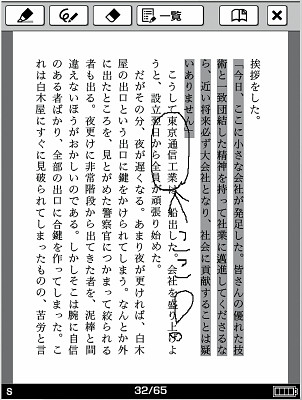 一覧
挨拶をした。
「今日、ここに小さな会社が発足した。皆さんの優れた技
術と一致団結した精神を持って社業に邁進してくださるな
ら、近い将来必ず大会社となり、社会に貢献することは疑
いありません」
こうして東京通信工業は、船出した。会社を盛り上げよ
うと、設立翌日から全員が頑張り始めた。
だがその分、夜が遅くなる。あまり夜が更ければ、白木
屋の出口という出口に鍵をかけられてしまう。なんとか外
に出たところを、見とがめた警察官につかまって絞られる
者も出る。夜更けに非常階段から出てきた者を、泥棒と間
違えないほうがおかしいのである。しかしそこは腕に自信
のある者ばかり、全部の出口に合鍵を作ってしまった。こ
れは白木屋にすぐに見破られてしまったものの、苦労と言
S
32/65